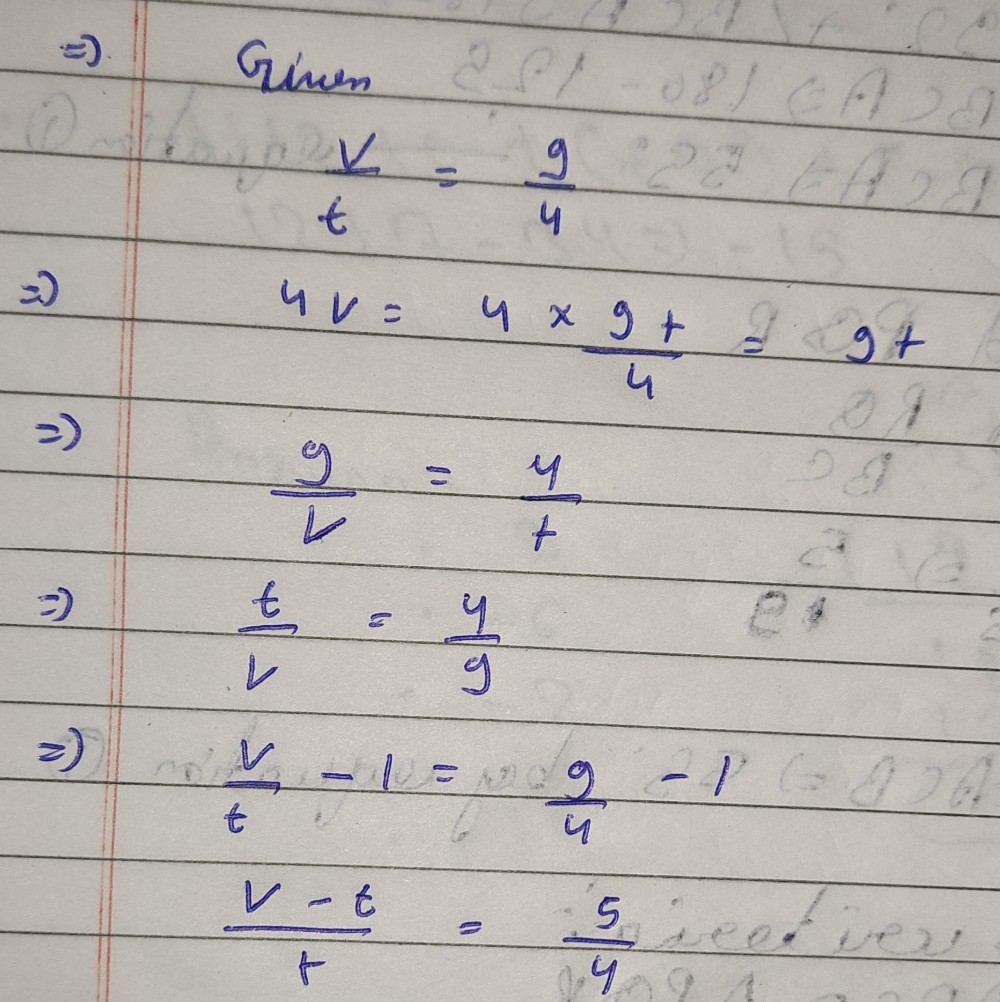 => Given
V/t = 9/4
=> 4V = 4 × 9t/4 = 9t
=> 9/V = 4/t
=> t/V = 4/9
=> V/t - 1 = 9/4 - 1
V - t/t = 5/4